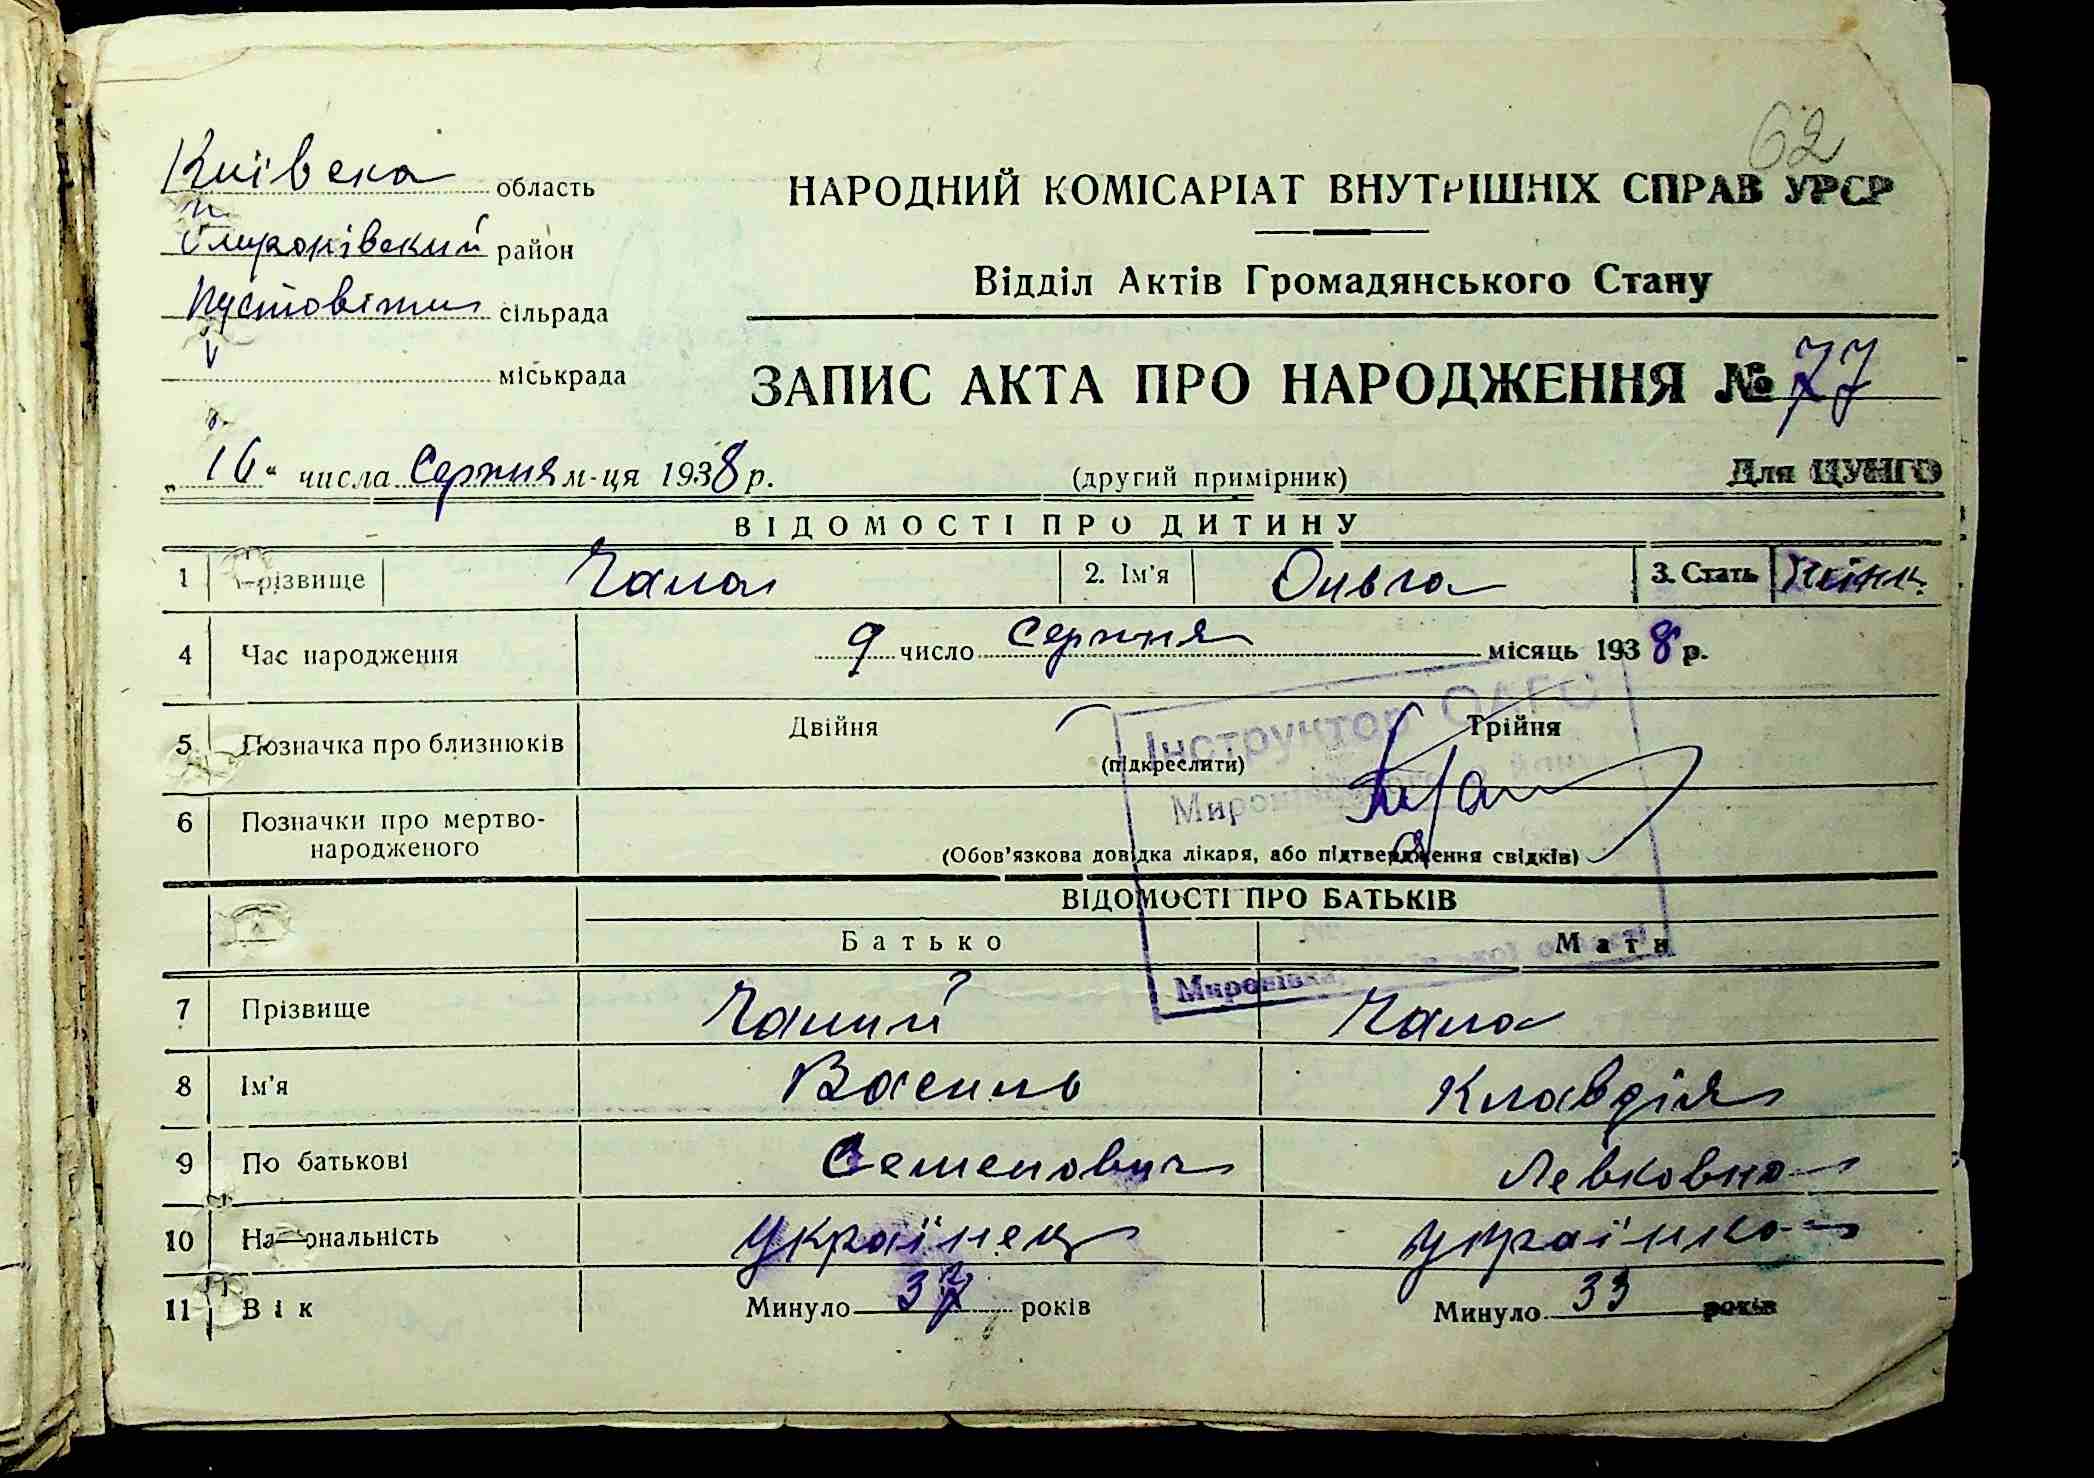 62
Київска область
Миронівский район
Пустовіти сільрада
міськрада
НАРОДНИЙ КОМІСАРІАТ ВНУТРІШНІХ СПРАВ УРСР
Відділ Актів Громадянського Стану
ЗАПИС АКТА ПРО НАРОДЖЕННЯ № 77
„16“ числа Серпня м-ця 1938 р. (другий примірник) Для ЦУНГО
ВІДОМОСТІ ПРО ДИТИНУ
1 Прізвище Чала 2. Ім'я Ольга 3. Стать жінк.
4 Час народження 9 число Серпня місяць 1938 р.
5 Позначка про близнюків Двійня Трійня
(підкреслити)
6 Позначки про мертвонародженого
(Обов'язкова довідка лікаря, або підтвердження свідків)
Інструктор ОАГС
Миронівка, Київської області
ВІДОМОСТІ ПРО БАТЬКІВ
Батько Мати
7 Прізвище Чалий Чала
8 Ім'я Василь Клавдія
9 По батькові Семенович Левковна
10 Національність Українец Українка
11 Вік Минуло 37 років Минуло 33 років